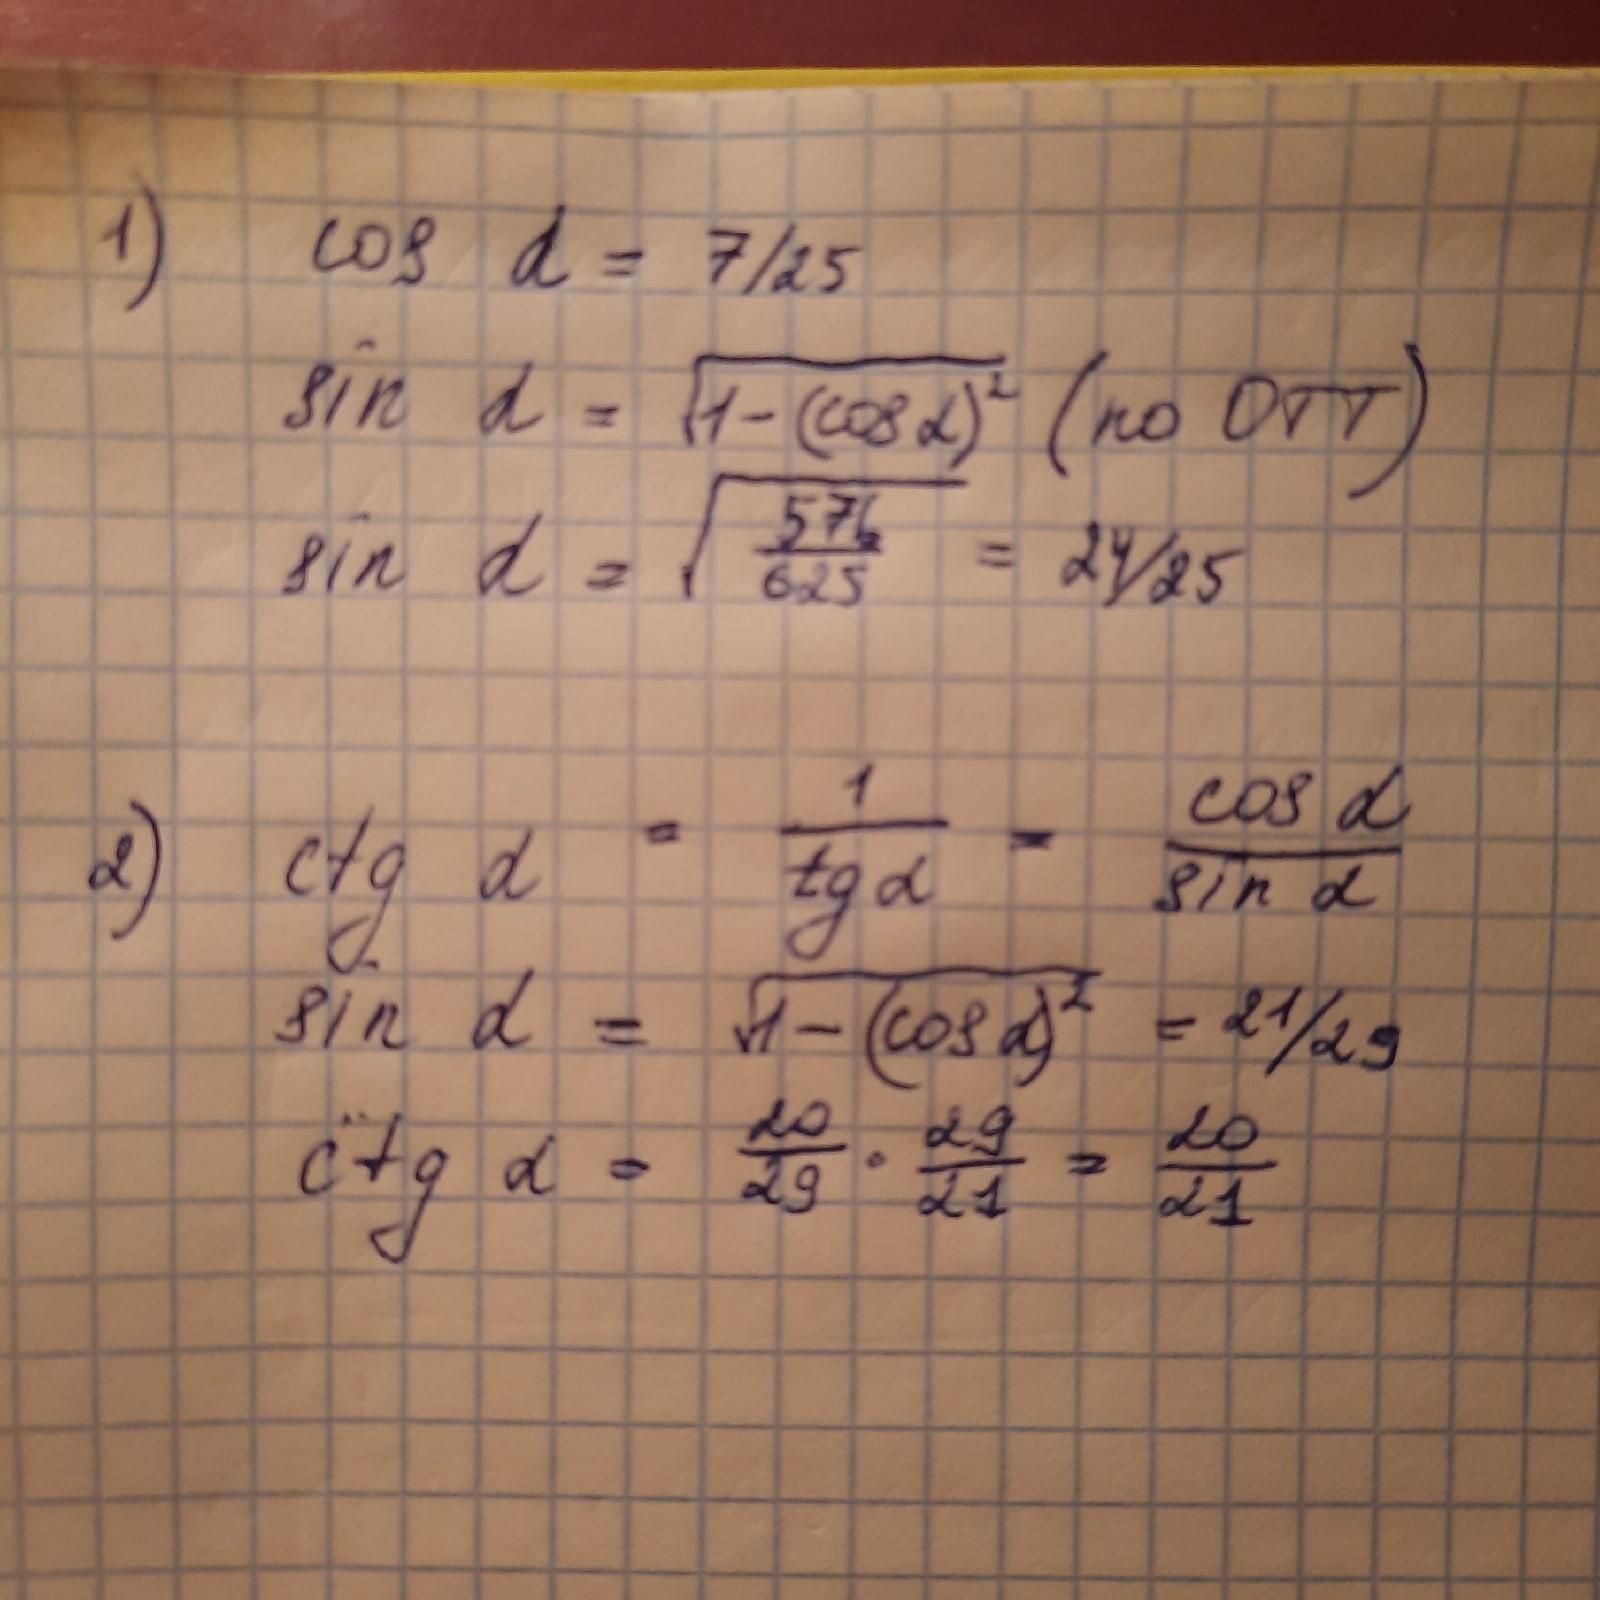 1) cos α = 7/25
sin α = √1-(cos α)² (по ОТТ)
sin α = √576/625 = 24/25
2) ctg α = 1/tg α = cos α/sin α
sin α = √1-(cos α)² = 21/29
ctg α = 20/29 · 29/21 = 20/21